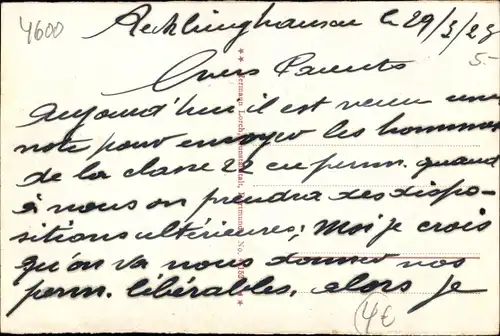 4600
Recklinghausen le 29/3/23
5.-
Chers Parents
Aujourd'hui il est venu une
note pour envoyer les hommes
de la classe 22 en perm. quand
à nous on prendra des dispo-
sitions ultérieures; Moi je crois
qu'on va nous donner nos
perm. libérables, alors je
4€
** Hermann Lorch, Kunstanstalt, Dortmund. No.